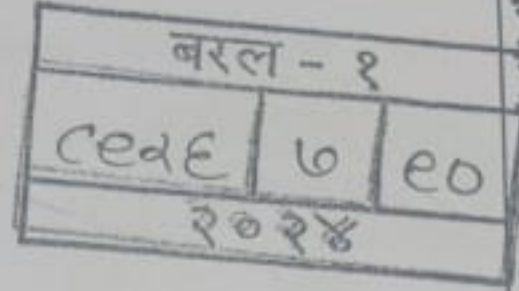 बरल - १
८९२६ ७ ९०
२०२४